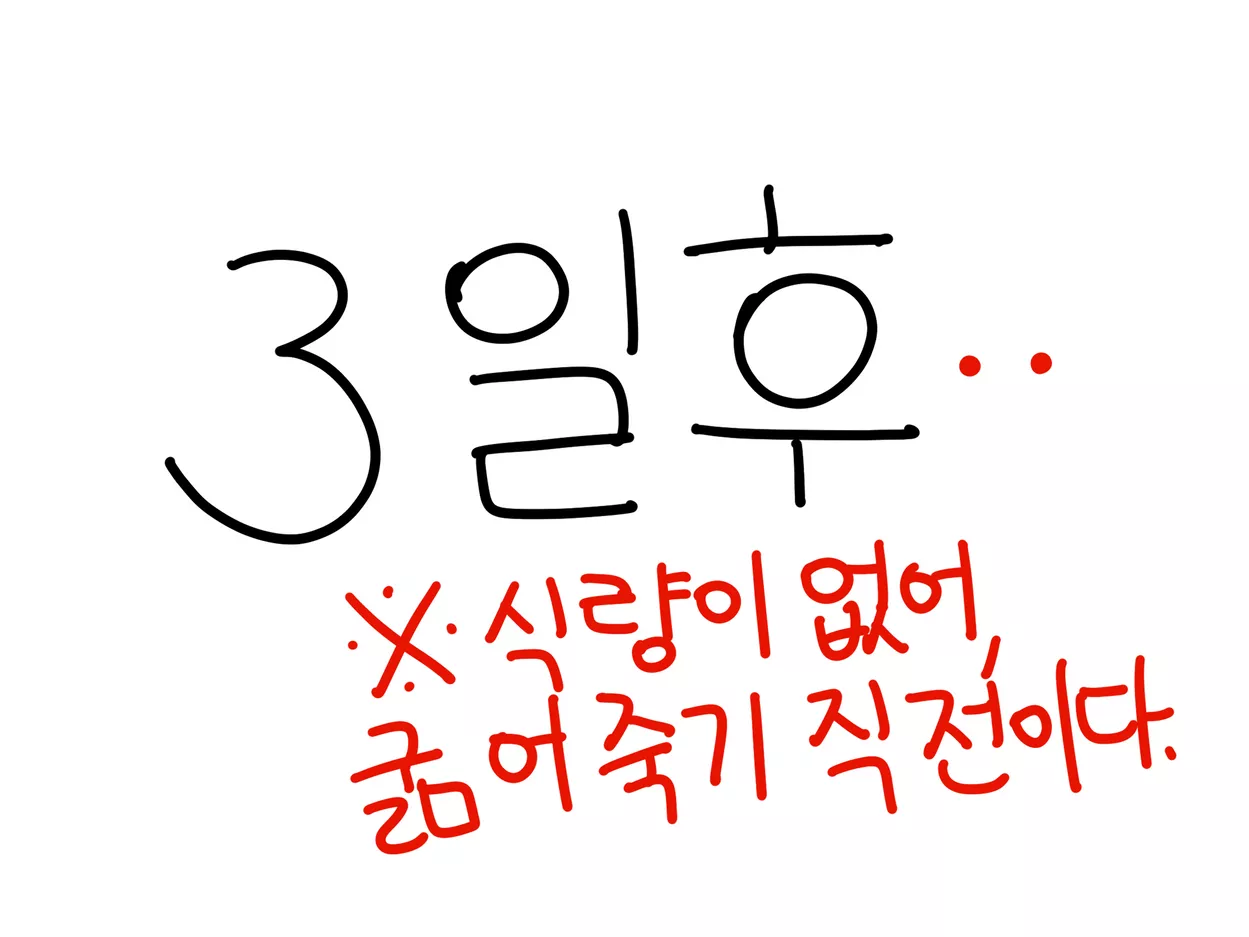 3일후..
※식량이 없어,
굶어죽기 직전이다.